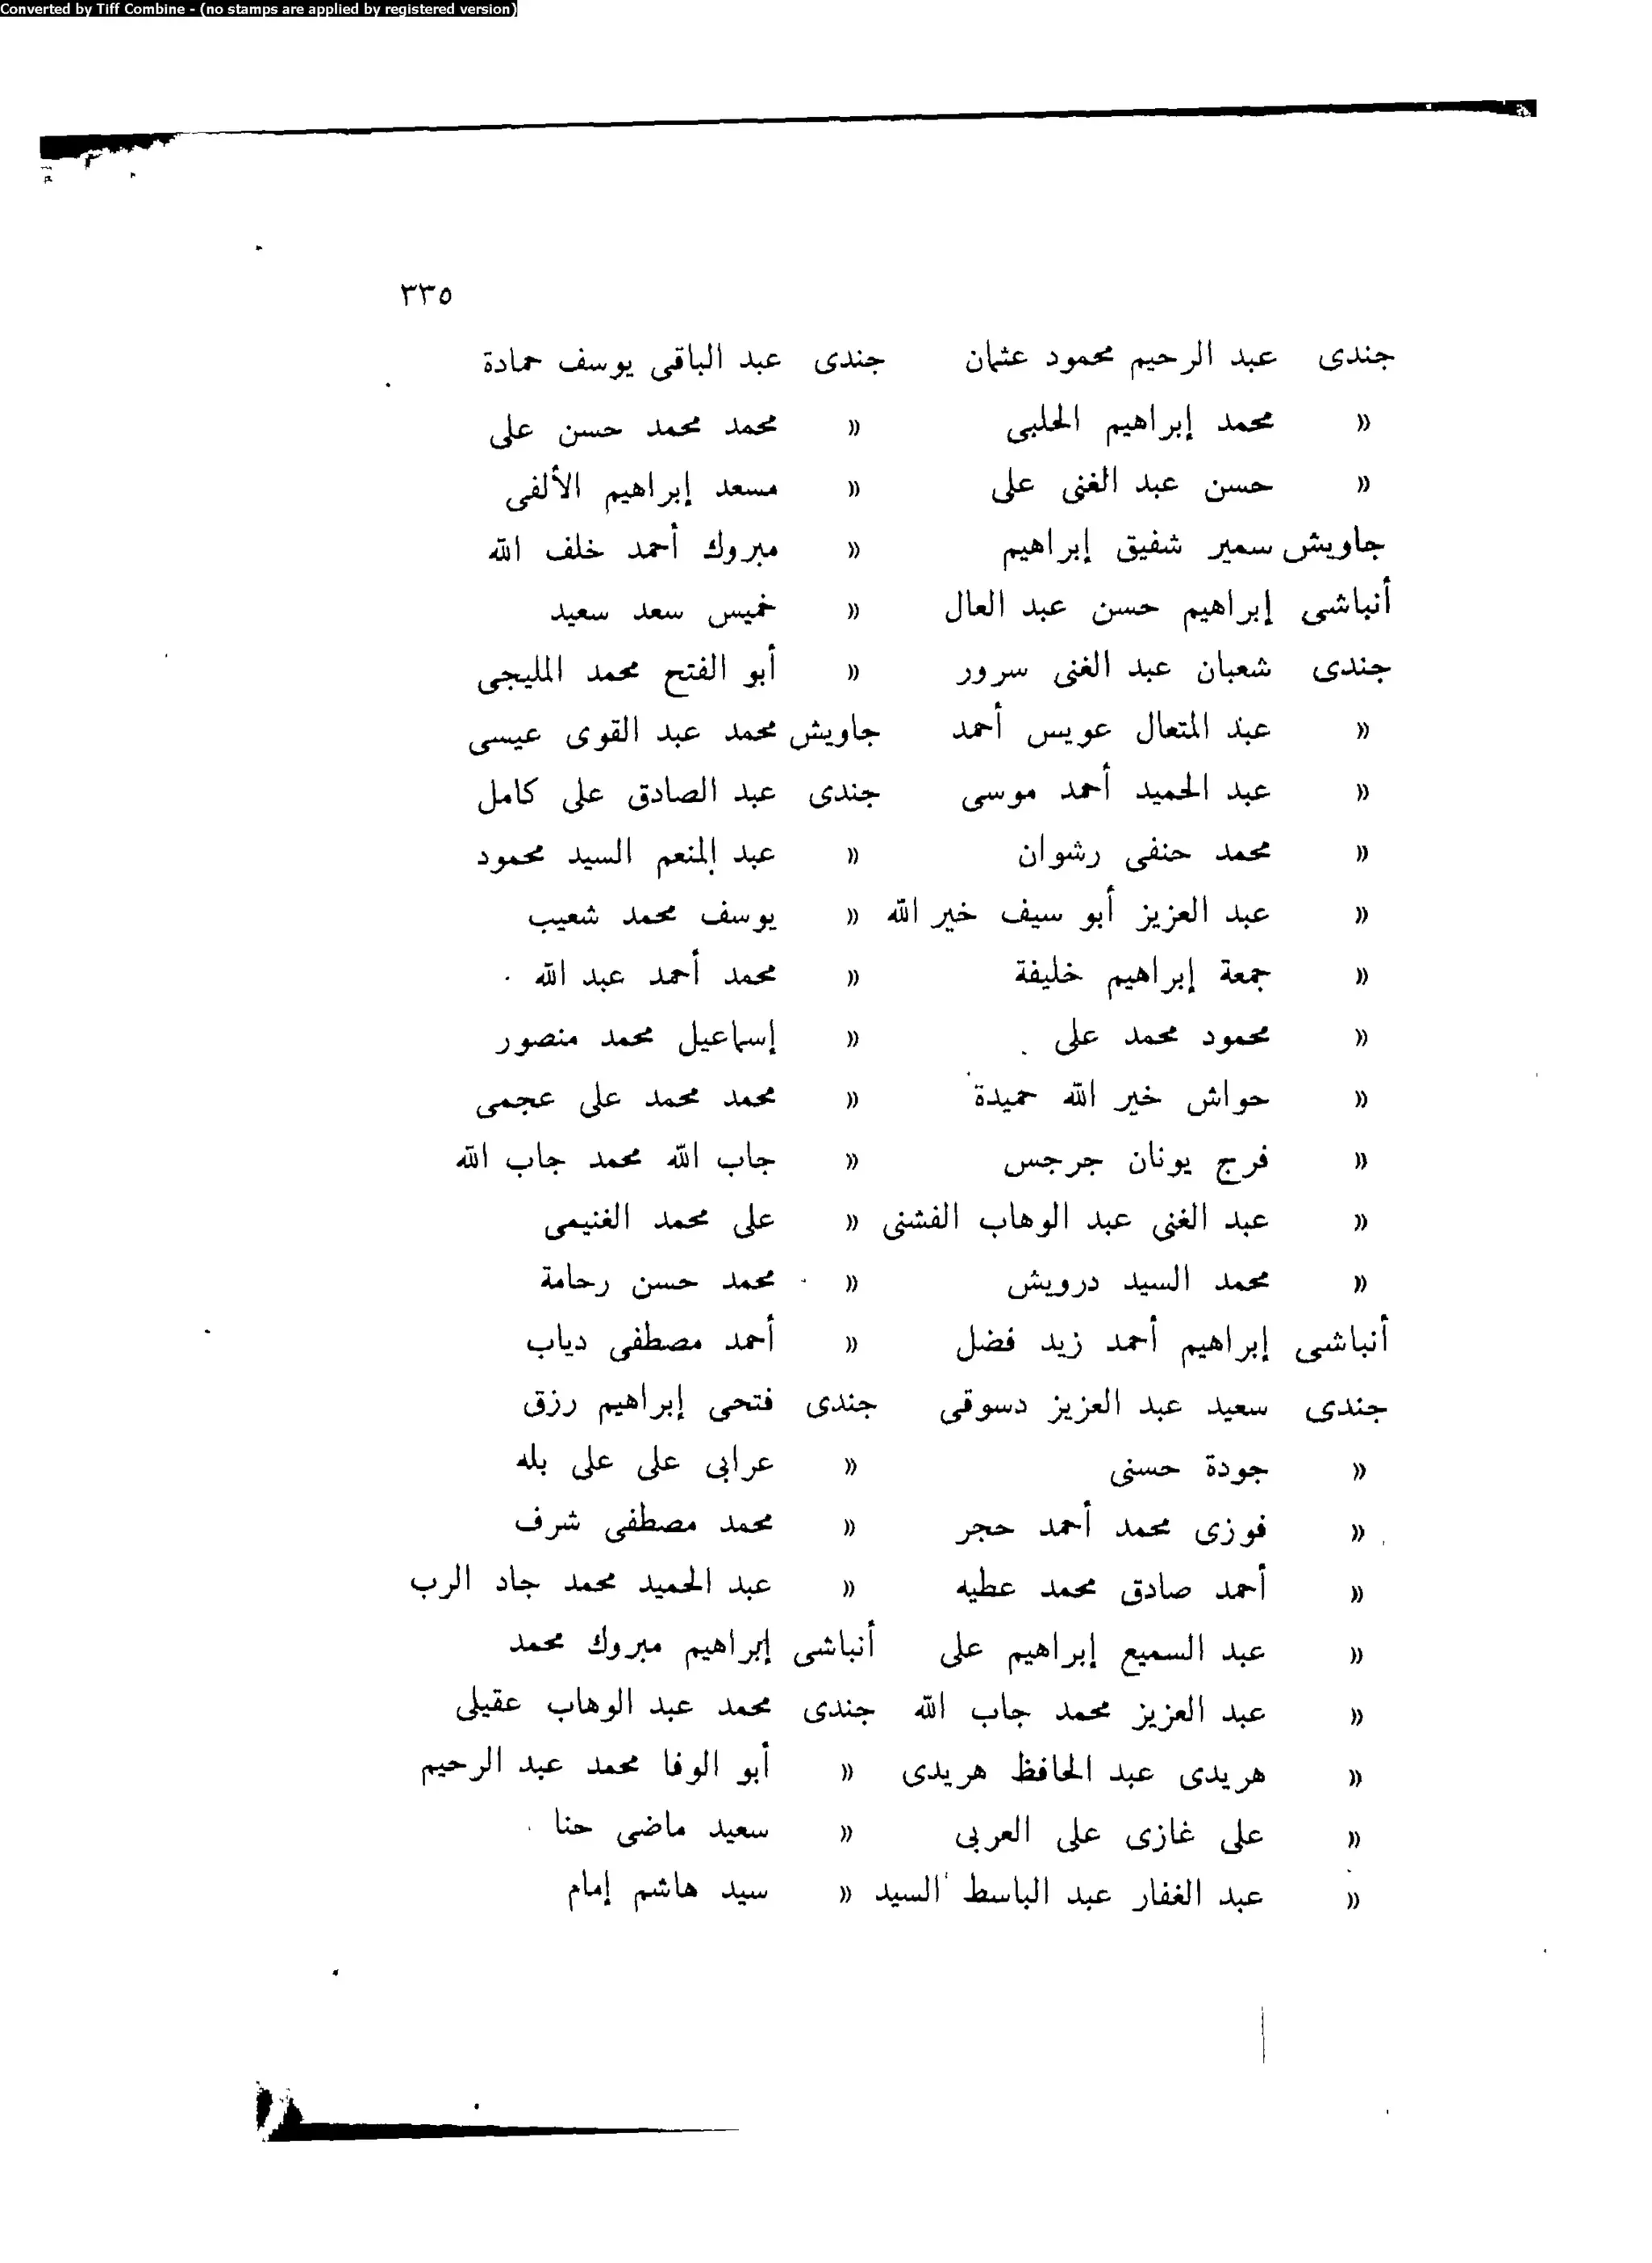 Converted by Tiff Combine - (no stamps are applied by registered version)
٣٣٥
جندى عبد الرحيم محمود عثمان جندى عبد الباقى يوسف حمادة
» محمد إبراهيم الحلبى » محمد محمد حسن على
» حسن عبد الغنى على » مسعد إبراهيم الألفى
جاويش سمير شفيق إبراهيم » مبروك أحمد خلف الله
أنباشى إبراهيم حسن عبد العال » خميس سعد سعيد
جندى شعبان عبد الغنى سرور » أبو الفتح محمد المليجى
» عبد المتعال عويس أحمد جاويش محمد عبد القوى عيسى
» عبد الحميد أحمد موسى جندى عبد الصادق على كامل
» محمد حنفى رشوان » عبد المنعم السيد محمود
» عبد العزيز أبو سيف خير الله » يوسف محمد شعيب
» جمعة إبراهيم خليفة » محمد أحمد عبد الله
» محمود محمد على » إسماعيل محمد منصور
» حواش خير الله حميدة » محمد محمد على عجمى
» فرج يونان جرجس » جاب الله محمد جاب الله
» عبد الغنى عبد الوهاب الفشنى » على محمد الغنيمى
» محمد السيد درويش » محمد حسن رحامة
أنباشى إبراهيم أحمد زيد فضل » أحمد مصطفى دياب
جندى سعيد عبد العزيز دسوقى جندى فتحى إبراهيم رزق
» جودة حسنى » عرابى على على بله
» فوزى محمد أحمد حجر » محمد مصطفى شرف
» أحمد صادق محمد عطيه » عبد الحميد محمد جاد الرب
» عبد السميع إبراهيم على أنباشى إبراهيم مبروك محمد
» عبد العزيز محمد جاب الله جندى محمد عبد الوهاب عقيلى
» هريدى عبد الحافظ هريدى » أبو الوفا محمد عبد الرحيم
» على غازى على العربى » سعيد ماضى حنا
» عبد الغفار عبد الباسط السيد » سيد هاشم إمام